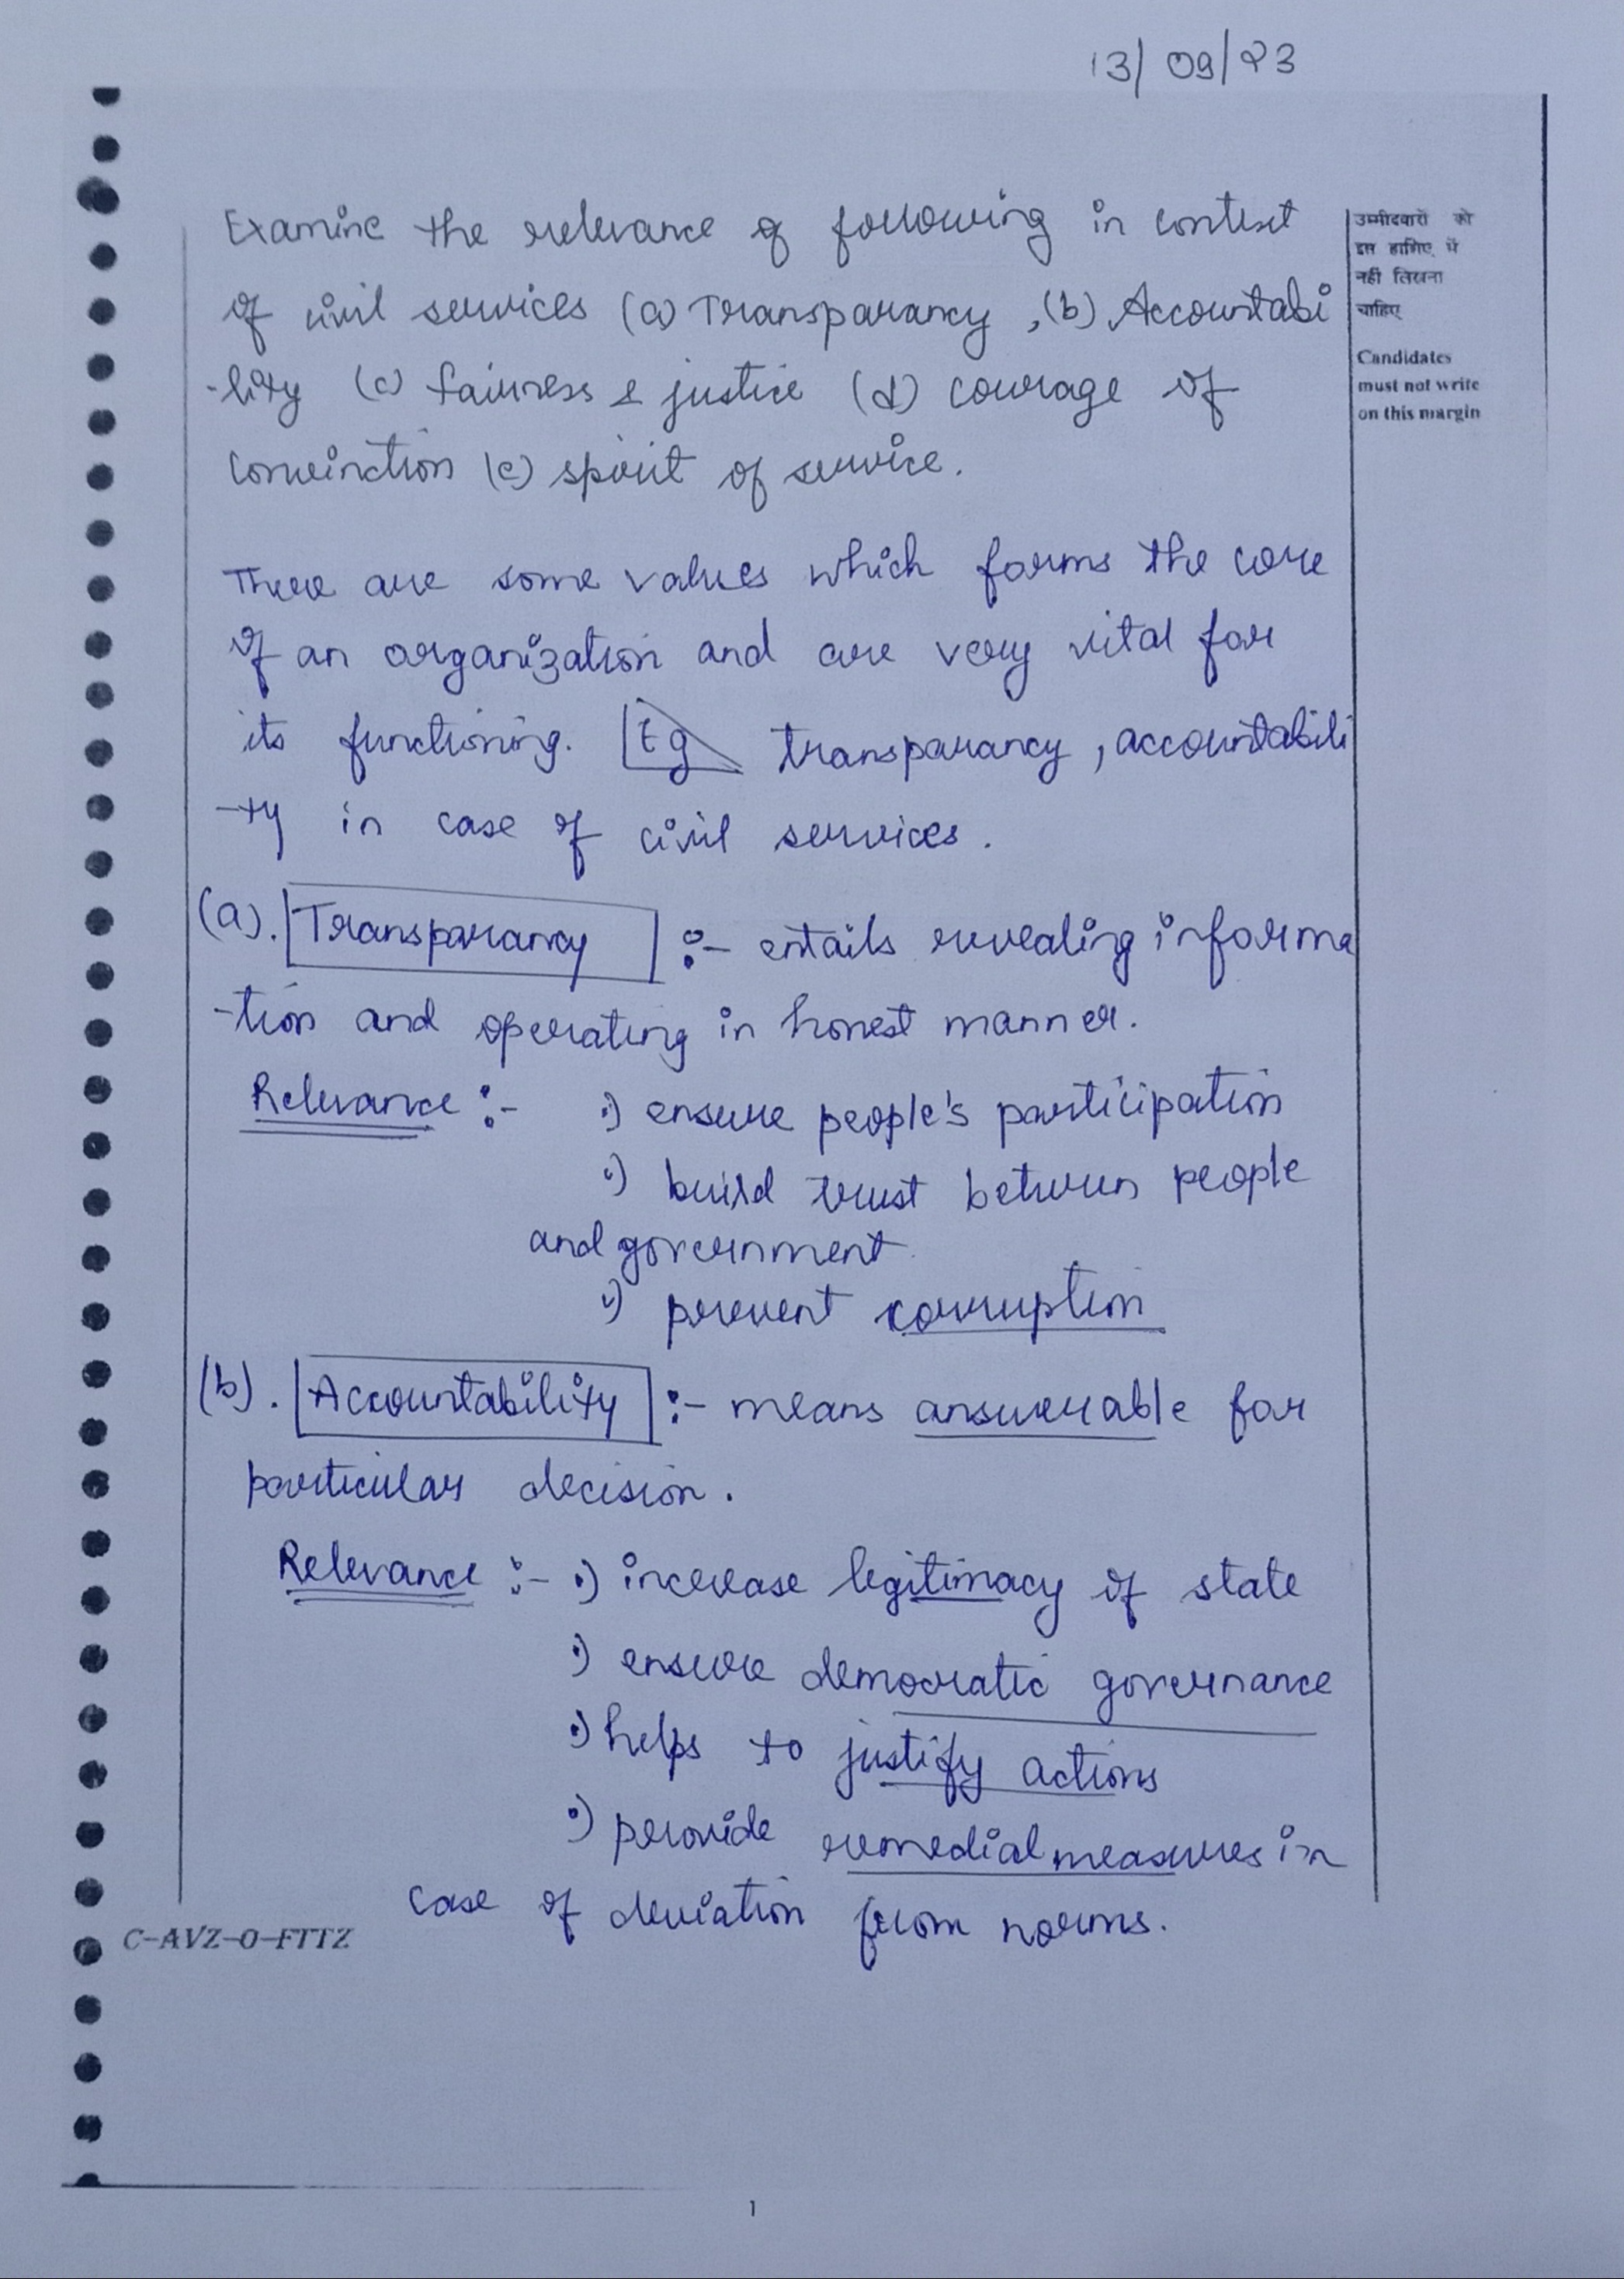 13/09/23
Examine the relevance of following in context
of civil services (a) Transparancy, (b) Accountabi
-lity (c) fairness & justice (d) courage of
convinction (e) spirit of service.
उम्मीदवारों को
इस हाशिए में
नहीं लिखना
चाहिए
Candidates
must not write
on this margin
There are some values which forms the core
of an organization and are very vital for
its functioning. Eg transparancy, accountabili
-ty in case of civil services.
(a). Transparancy :- entails revealing informa
-tion and operating in honest manner.
Relevance :- •) ensure people's participation
•) build trust between people
and government
•) prevent corruption
(b). Accountability :- means answerable for
particular decision.
Relevance :- •) increase legitimacy of state
•) ensure democratic governance
•) helps to justify actions
•) provide remedial measures in
case of deviation from norms.
C-AVZ-O-FTTZ
1